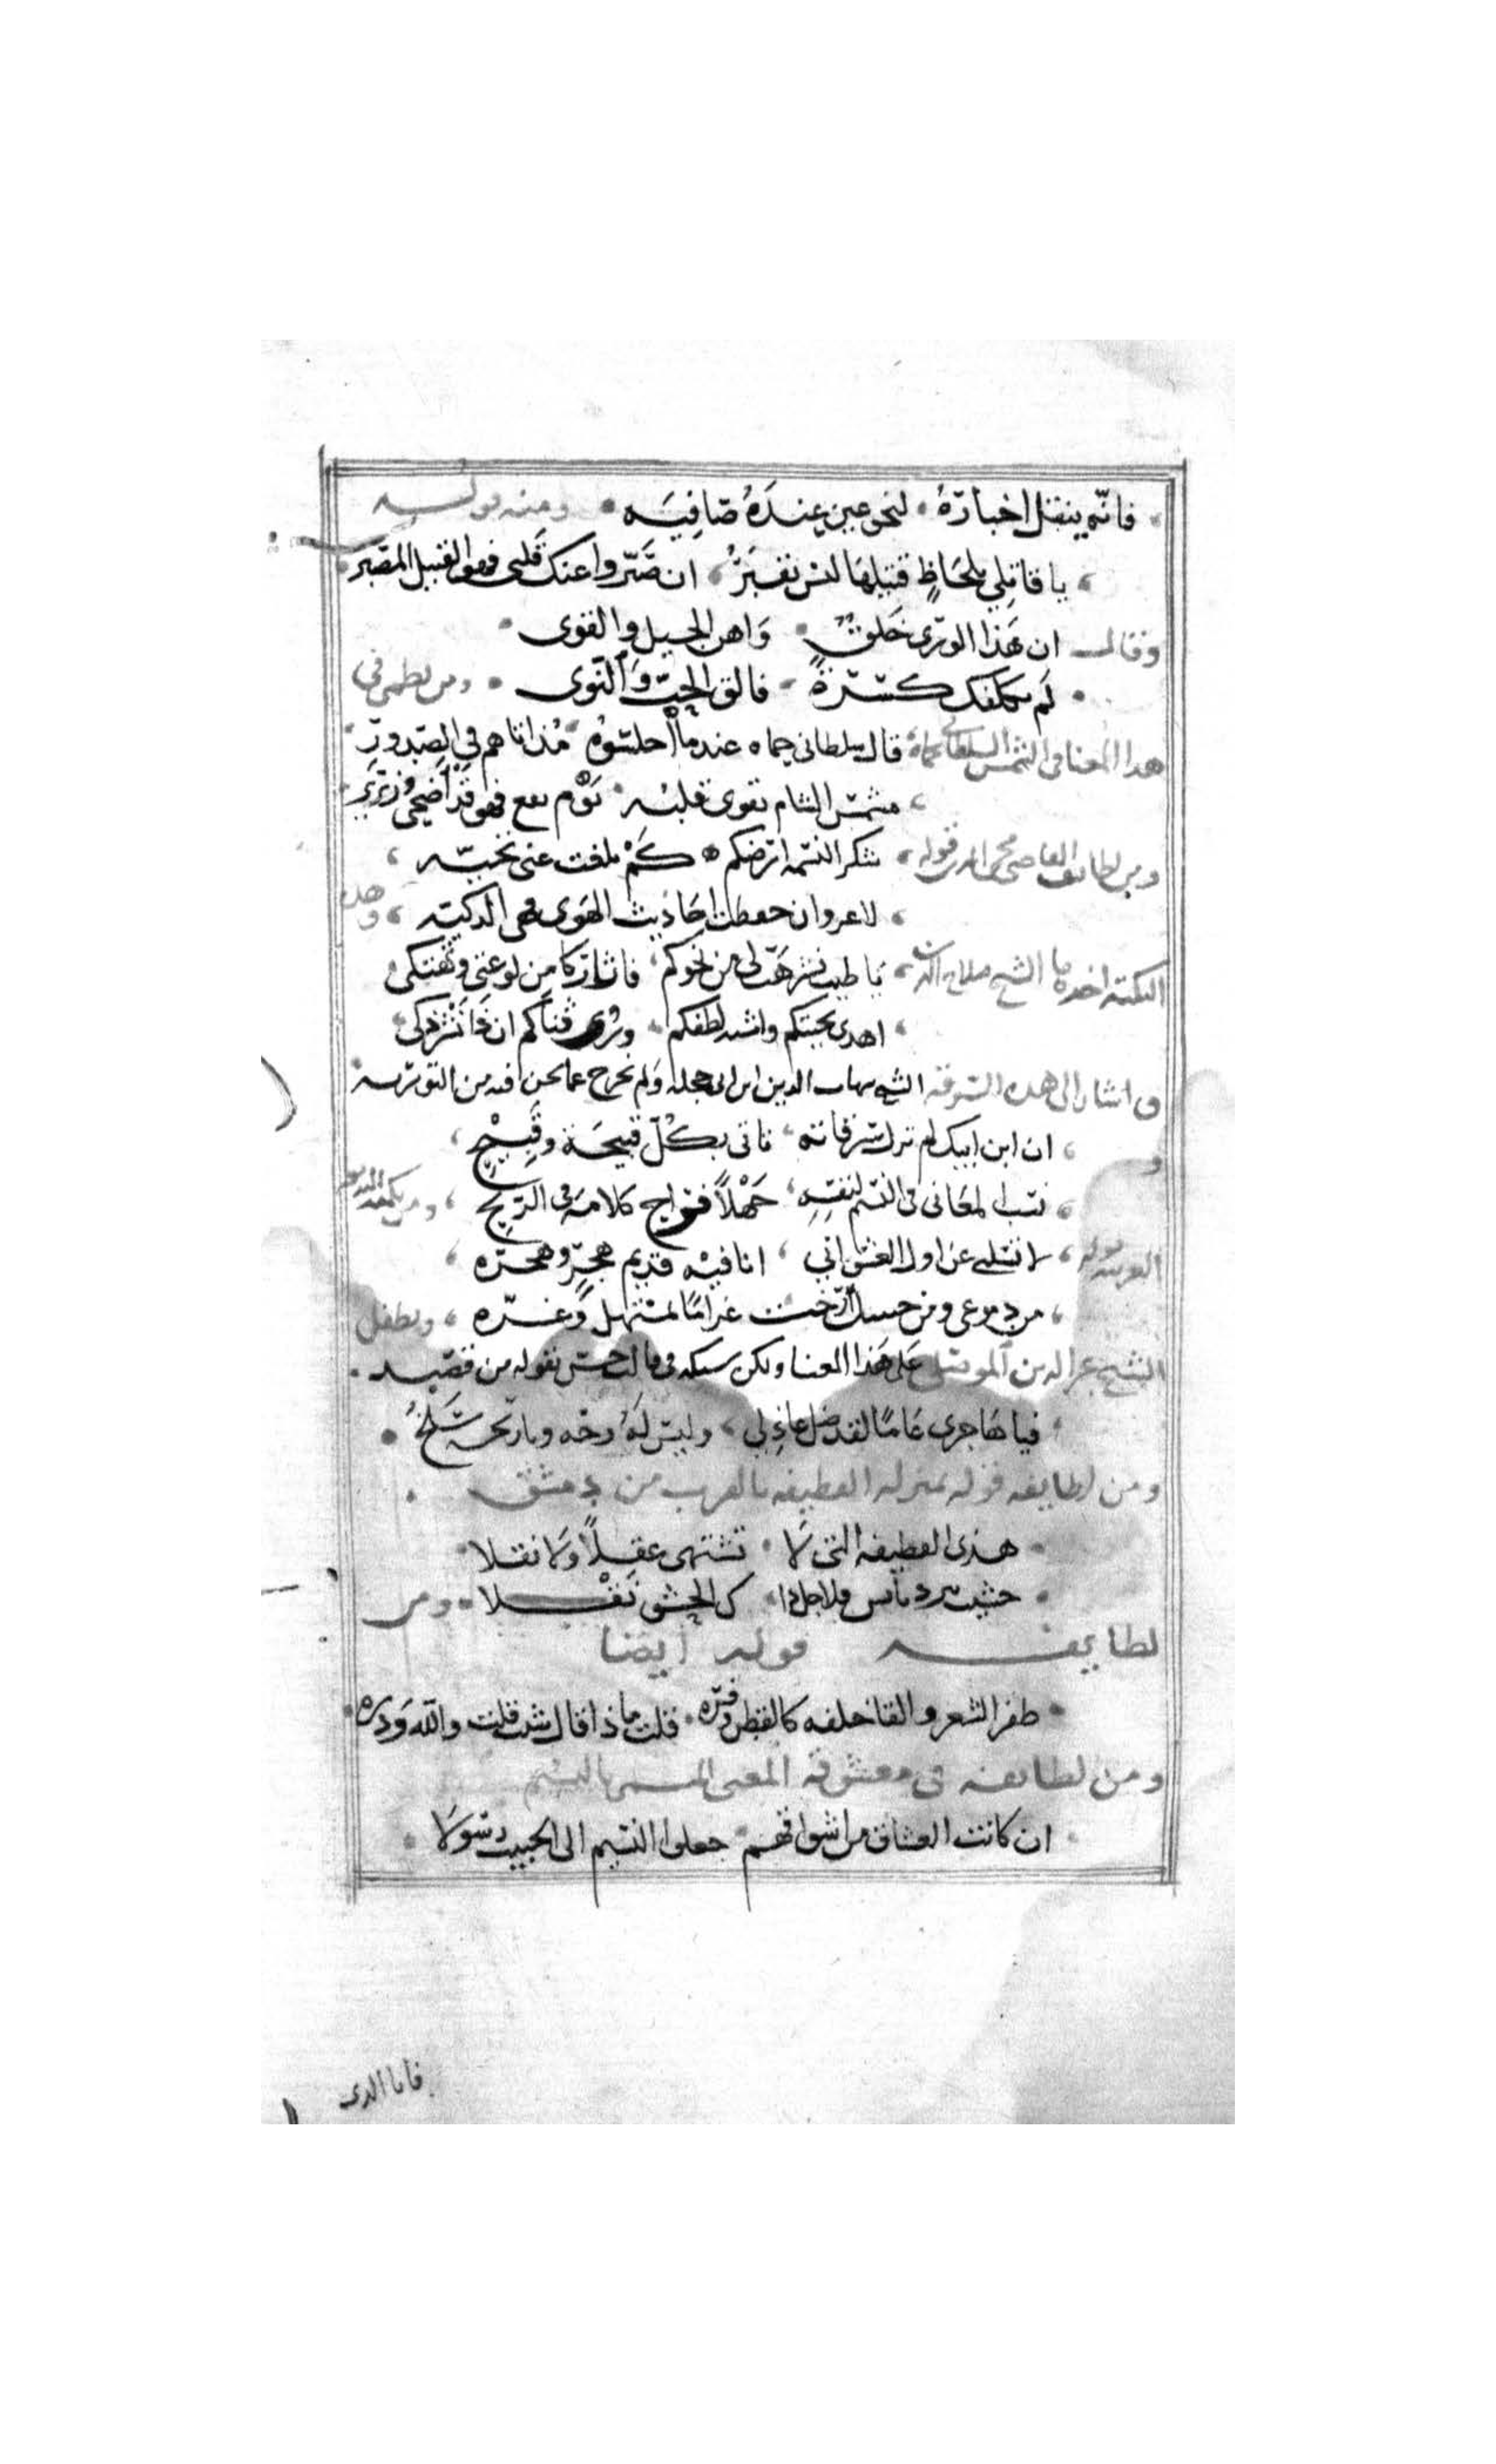 فانّه ينقل اخبارهُ لنحو عينٍ عِندَهُ صَافِيَه ومنه قوله
يا قاتلي بلحَاظٍ قتيلهَا ليْس يقبَرُ ان صَبّروا عنك قلبي فهو القتيل المصَبّر
وقال ان هَذا الورَى خَلقٌ وَاهن الجيل والقوى
لَم يكلفك كسْرَةً فالق الحبّ وَالنّوى ومن نظمى فى
هدا المعنا فى الشمس السلطانى بحماة قال سلطانى حماه عندما اجلسُوهُ مُذ اتاهم في الصّدورِ
شمسّ الشام تقوى قلبه فهو قَدْ أضحَى وزيرِ
ومن لطايف القاضى محى الدين قوله شكرا لنسمة ارضكم كَمْ بلغت عنى تحيّه
لا غرو ان حفظت احَاديث الهَوى فهى الدكيّه وهذه
النكتة اخدها الشيخ صلاح الدين يَا طيب نشر هَبّ لى من نحوكم فاثار كامن لوعتى وتهتكى
اهدى تحيتكم واشبه لطفكم وروى شذاكم ان ذَا نشر ذكى
واشار الى هده السرقة الشيخ شهاب الدين ابن ابى حجله ولم يخرج عما نحن فيه من التورية
ان ابن ايبك لم تزل سرقاته تاتى بكُلّ قبيحَة وقَبِيْحِ
نسَب المعَانى فى النسيم لنفسِهِ جَهْلاً فراح كلامه فى الرّيحِ
لا تسَلني عن اول العشق انّي انا فيْه قديم هجرٍ وهجرَه
من دموعى ومن جبينك أرّخت غرامًا بمُسْتهلٍ وَغرّه وتطفل
الشيخ عز الدين الموصلى عَلى هَذا المعنا ولكن سبكه فى قالب حسن بقوله من قصيد
فيا هَاجرى عَامًا لقد ضل عاذِلي وليسَ لَهُ وجْه وتاريخه سَلخُ
ومن لطايفه قوله بمنزله القطيفه بالقرب من دمشق
هذى القطيفه التى لَا تشتهى عقلاً وَلا نقلا
حشيت ببرد يابس فلاجل ذا الحشى نقْلا ومن
لطايفه قوله ايضا
ظفر الشعر والقا خلفه كالقطن وفره قلت ماذا قال شب قلت والله وذره
ومن لطايفه فى معشوقه المغنى المسمى بالنسيم
ان كانت العشاق من اشواقهم جعلوا النسيم الى الحبيب رسُولَا
فانا الدى